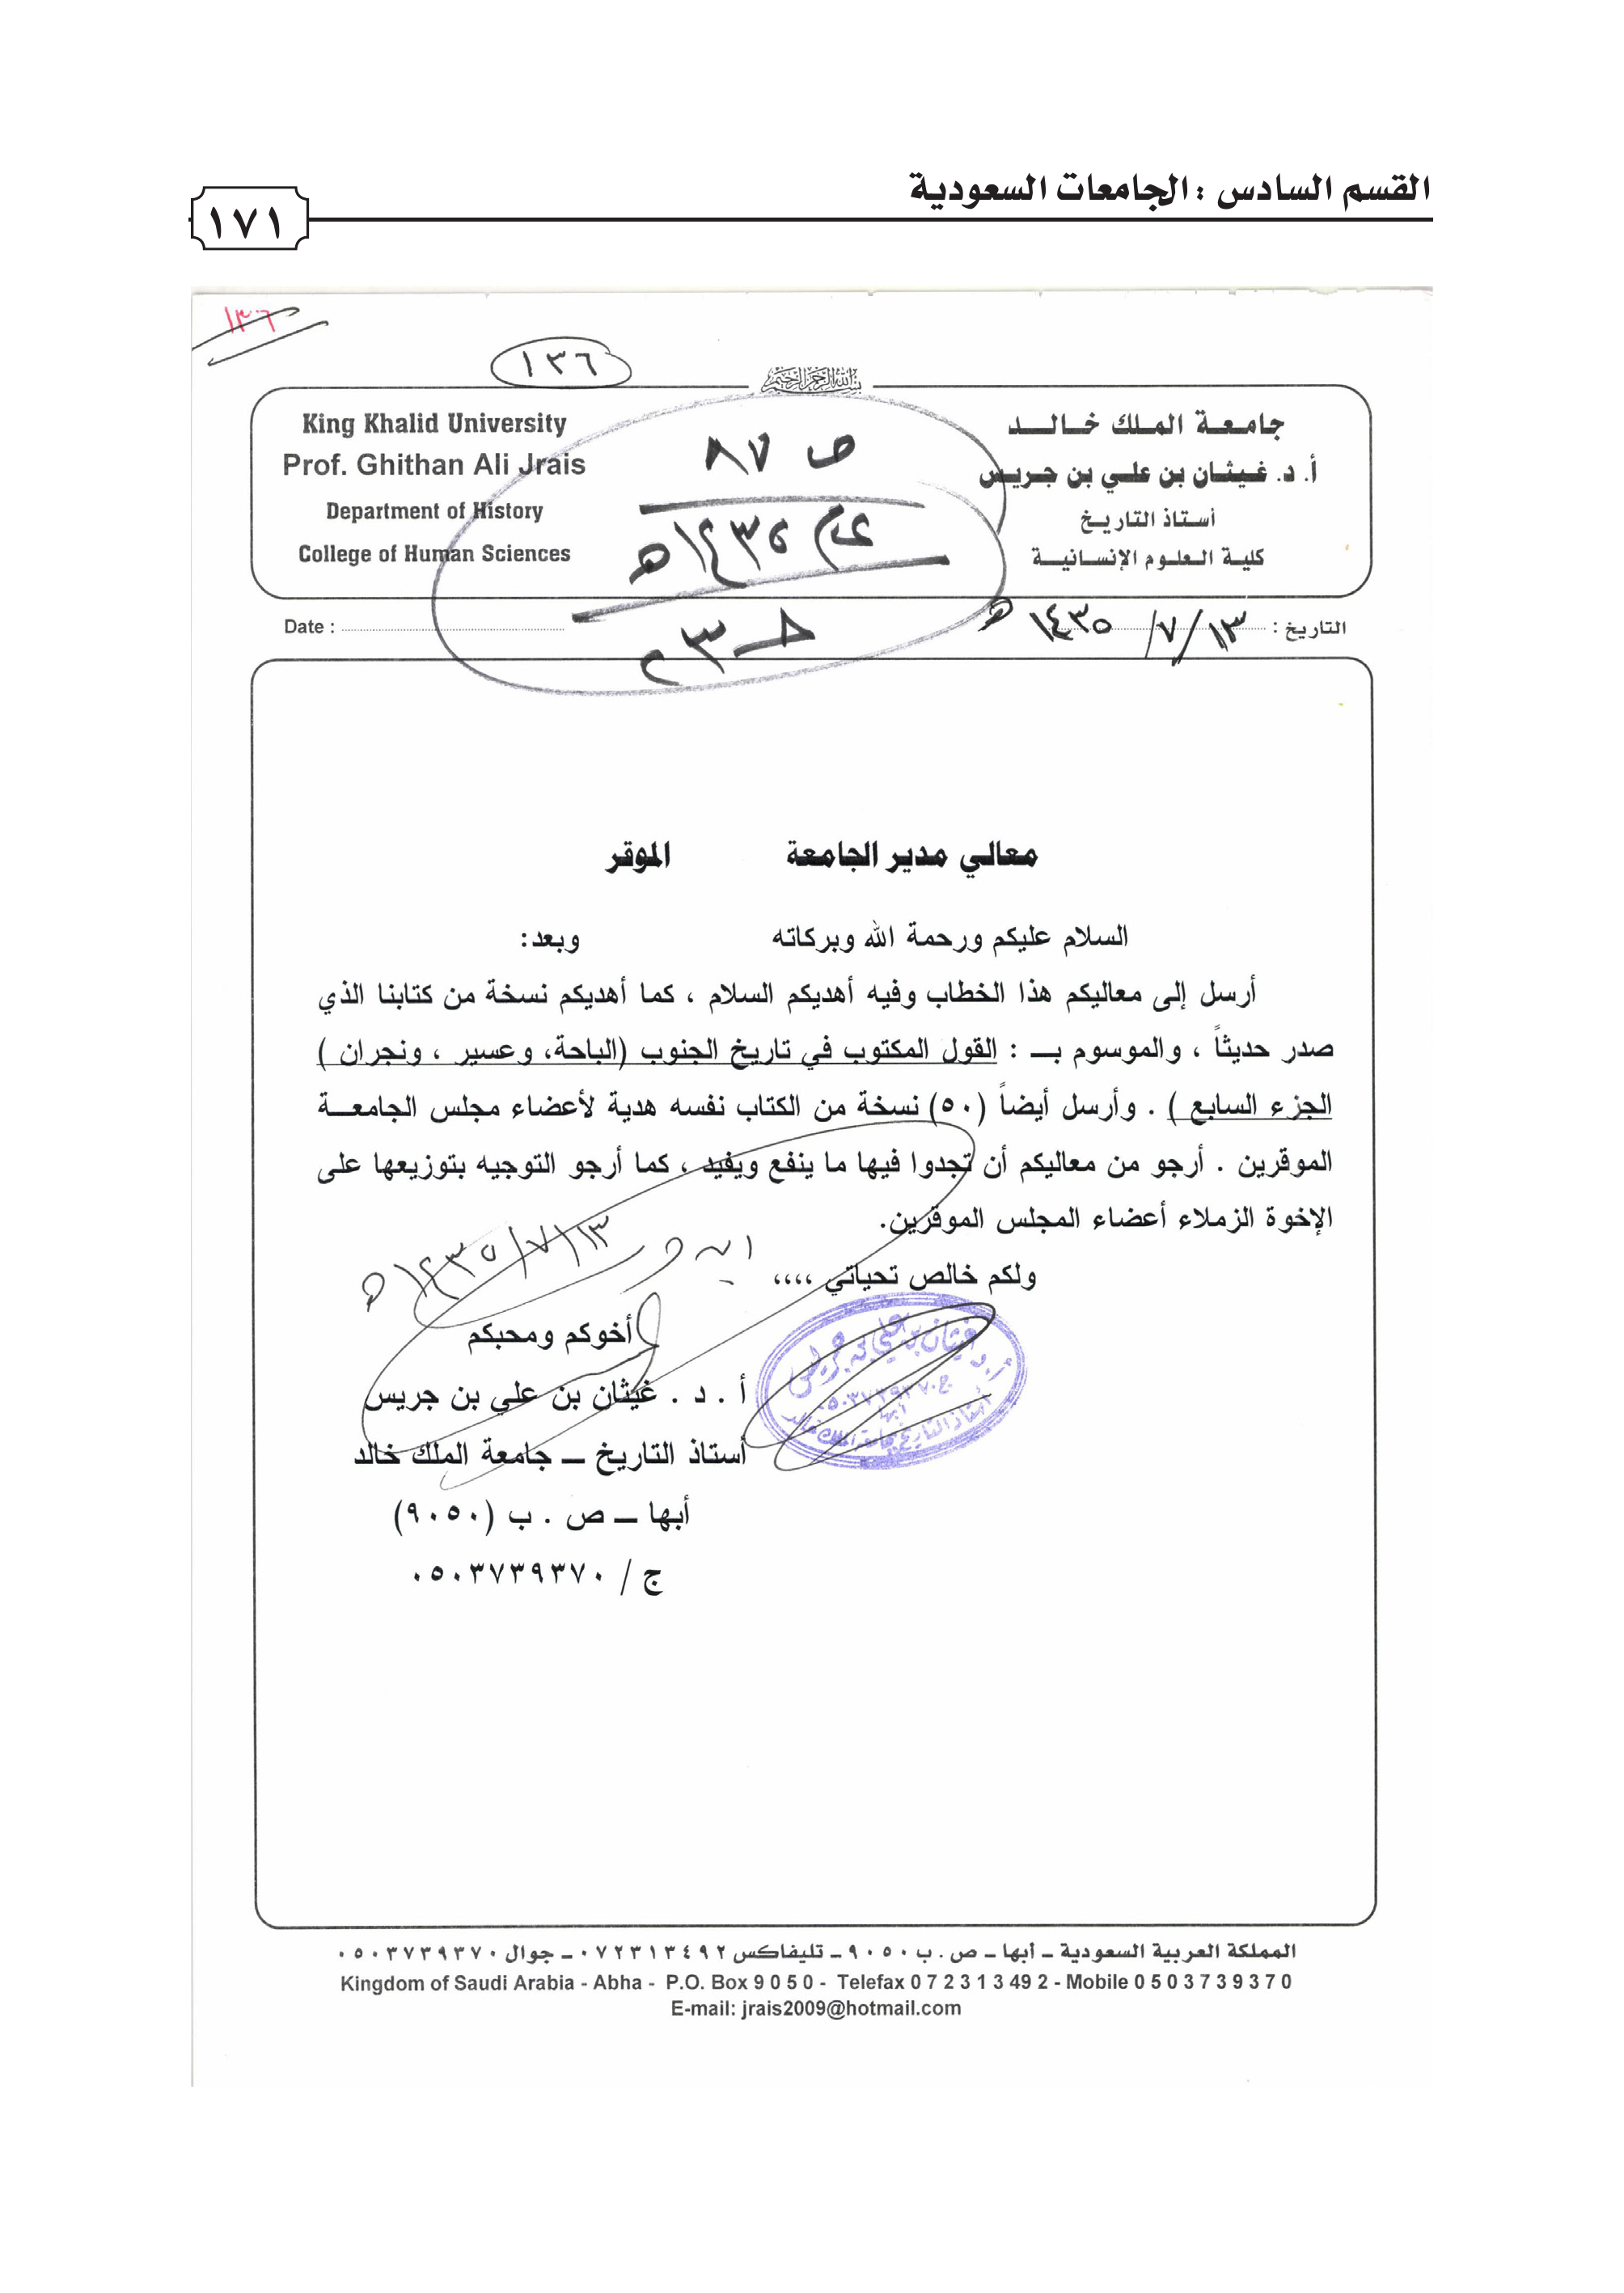 القسم السادس : الجامعات السعودية
١٧١
١٣٦
١٣٦
بسم الله الرحمن الرحيم
جامعة الملك خالد
أ. د. غيثان بن علي بن جريس
أستاذ التاريخ
كلية العلوم الإنسانية
King Khalid University
Prof. Ghithan Ali Jrais
Department of History
College of Human Sciences
ص ٨٧
عام ١٤٣٥هـ
التاريخ : ١٣/ ٧/ ١٤٣٥هـ
Date :
معالي مدير الجامعة الموقر
السلام عليكم ورحمة الله وبركاته وبعد:
أرسل إلى معاليكم هذا الخطاب وفيه أهديكم السلام ، كما أهديكم نسخة من كتابنا الذي
صدر حديثاً ، والموسوم بـ : القول المكتوب في تاريخ الجنوب (الباحة، وعسير ، ونجران )
الجزء السابع ) . وأرسل أيضاً (٥٠) نسخة من الكتاب نفسه هدية لأعضاء مجلس الجامعة
الموقرين . أرجو من معاليكم أن تجدوا فيها ما ينفع ويفيد ، كما أرجو التوجيه بتوزيعها على
الإخوة الزملاء أعضاء المجلس الموقرين.
١٣/٧/١٤٣٥هـ
ولكم خالص تحياتي ،،،،
أخوكم ومحبكم
أ . د . غيثان بن علي بن جريس
أستاذ التاريخ ـ جامعة الملك خالد
أبها ـ ص . ب (٩٠٥٠)
ج / ٠٥٠٣٧٣٩٣٧٠
أ. د غيثان بن علي بن جريس
ج ٠٥٠٣٧٣٩٣٧٠
أبها
أستاذ التاريخ بجامعة الملك خالد
المملكة العربية السعودية ـ أبها ـ ص . ب ٩٠٥٠ ـ تليفاكس ٠٧٢٣١٣٤٩٢ ـ جوال ٠٥٠٣٧٣٩٣٧٠
Kingdom of Saudi Arabia - Abha - P.O. Box 9 0 5 0 - Telefax 0 7 2 3 1 3 49 2 - Mobile 0 5 0 3 7 3 9 3 7 0
E-mail: jrais2009@hotmail.com